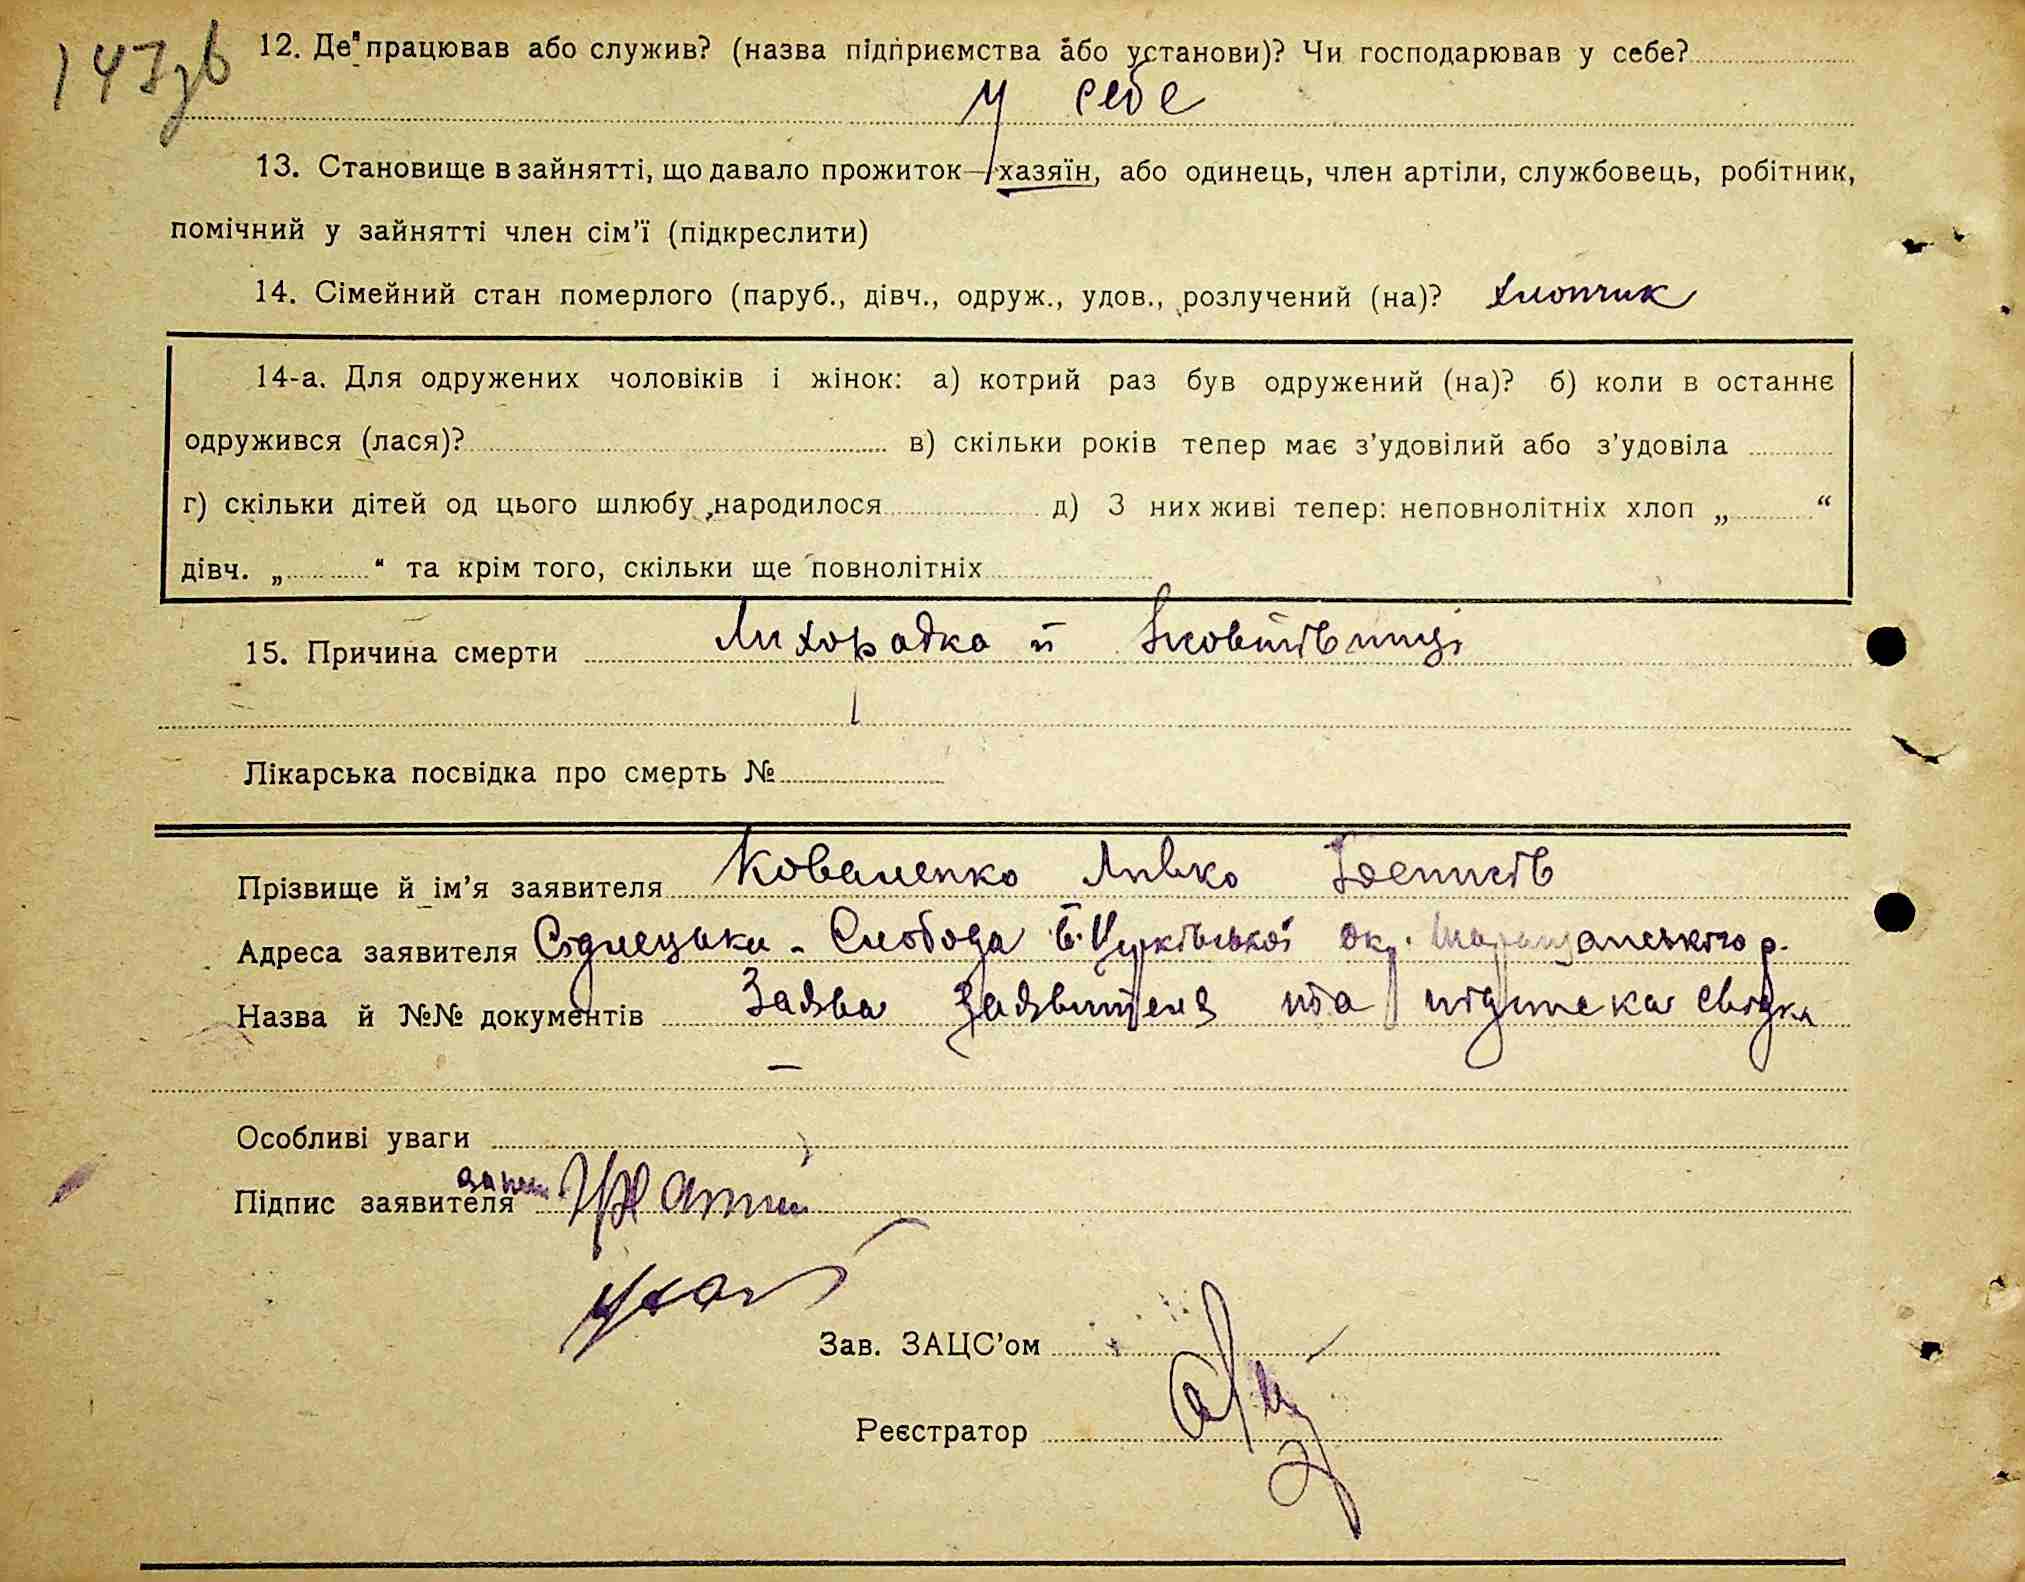 147зв
12. Де працював або служив? (назва підприємства або установи)? Чи господарював у себе?
у себе
13. Становище в зайнятті, що давало прожиток — хазяїн, або одинець, член артіли, службовець, робітник,
помічний у зайнятті член сім'ї (підкреслити)
14. Сімейний стан померлого (паруб., дівч., одруж., удов., розлучений (на)? хлопчик
14-а. Для одружених чоловіків і жінок: а) котрий раз був одружений (на)? б) коли в останнє
одружився (лася)? в) скільки років тепер має з'удовілий або з'удовіла
г) скільки дітей од цього шлюбу народилося д) З них живі тепер: неповнолітніх хлоп „ “
дівч. „ “ та крім того, скільки ще повнолітніх
15. Причина смерти Лихорадка й
Лікарська посвідка про смерть №
Прізвище й ім'я заявителя Коваленко Ливко
Адреса заявителя Слобода Б. Церківської окр.
Назва й №№ документів Заява заявителя та підписка свідки
—
Особливі уваги
Підпис заявителя
Зав. ЗАЦС'ом
Реєстратор